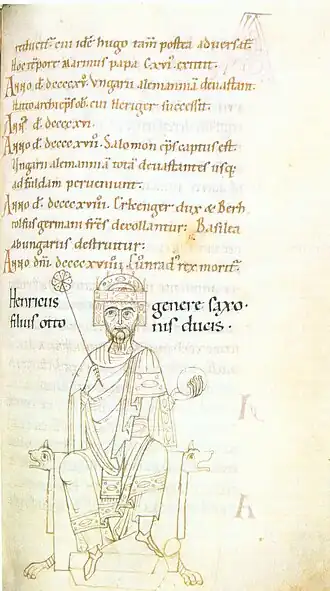 restituitur. cui idē hugo tam̄ postea adversat̄.
Hoc tēpore Marinus papa Cxvi. extitit.
Anno dī. dcccc xv. Ungarii alemanniā devastant.
Hatto archiep̄s ob. cui Heriger successit.
Ann̄ dī. dcccc xvi.
Anno dī. dcccc xvii. Salomon ep̄s captus est.
Ungarii alemanniā totā devastantes usq;
ad fuldam perveniunt.
Anno dī. dcccc xviii. Erkenger dux & Berh
tolfus germani frēs decollantur. Basilea
ab ungariis destruitur:
Anno dnī. dcccc xviiii. Cūnrad' rex morit'.
Henricus
filius otto
genere saxo·
nis ducis·